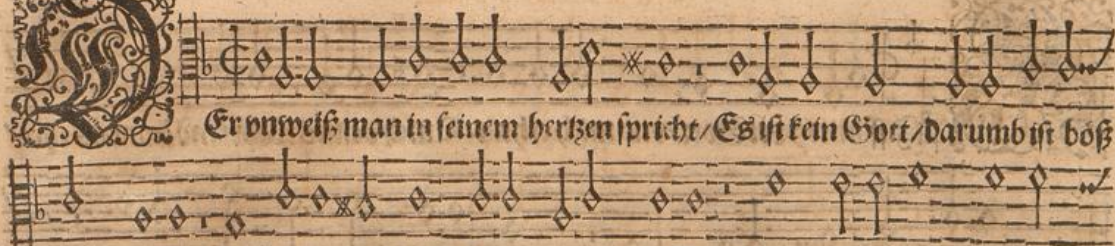 DEr vnweiß man in seinem hertzen spricht/Es ist kein Gott/darumb ist böß